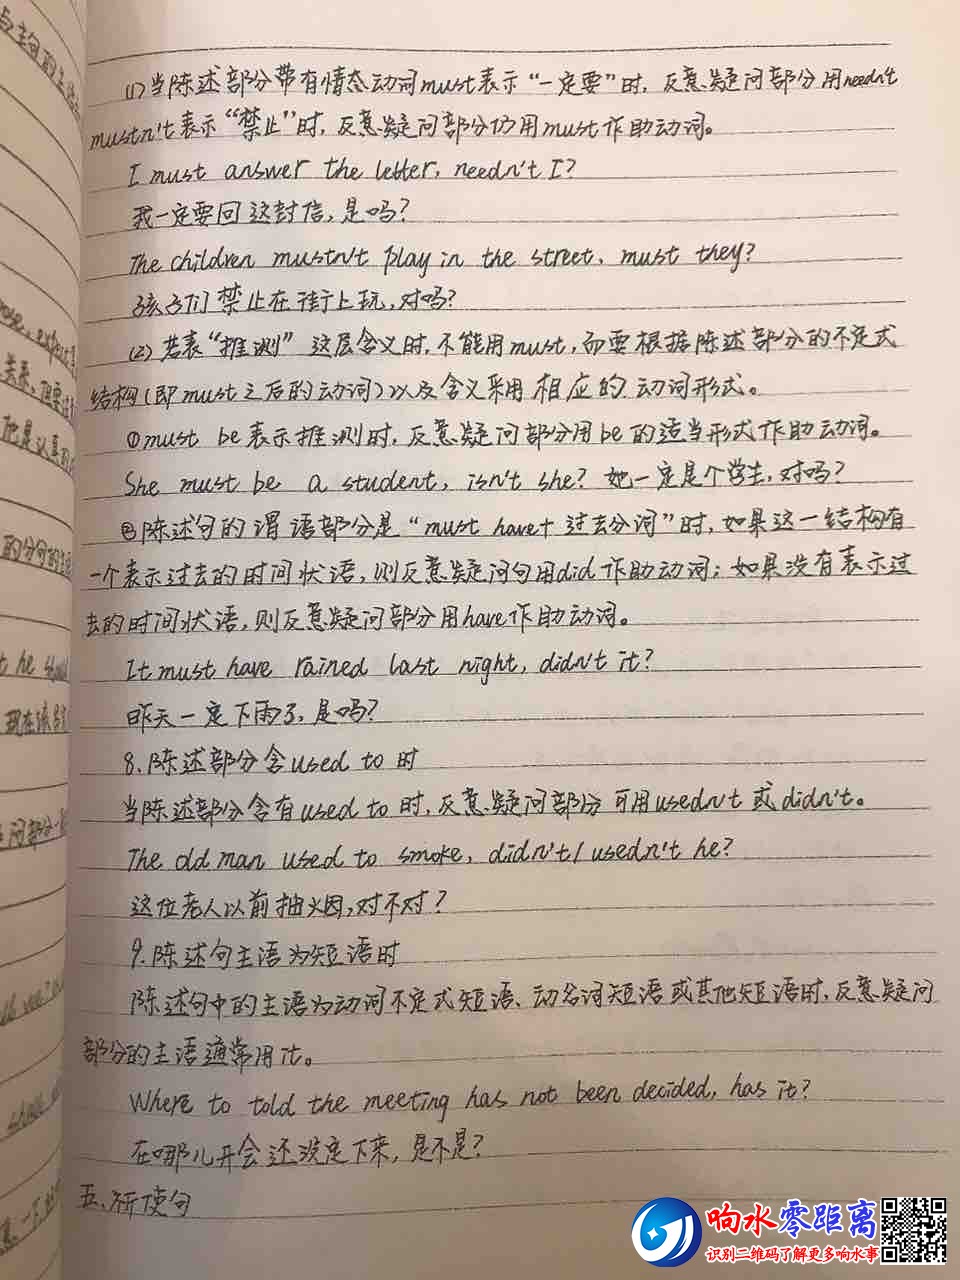 (1)当陈述部分带有情态动词must表示“一定要”时，反意疑问部分用needn't
mustn't表示“禁止”时，反意疑问部分仍用must作助动词。
I must answer the letter, needn't I?
我一定要回这封信，是吗？
The children mustn't play in the street, must they?
孩子们禁止在街上玩，对吗？
(2)若表“推测”这层含义时，不能用must，而要根据陈述部分的不定式
结构(即must之后的动词)以及含义采用相应的动词形式。
①must be表示推测时，反意疑问部分用be的适当形式作助动词。
She must be a student, isn't she? 她一定是个学生，对吗？
②陈述句的谓语部分是“must have+过去分词”时，如果这一结构有
一个表示过去的时间状语，则反意疑问句用did作助动词；如果没有表示过
去的时间状语，则反意疑问部分用have作助动词。
It must have rained last night, didn't it?
昨天一定下雨了，是吗？
8.陈述部分含used to时
当陈述部分含有used to时，反意疑问部分可用usedn't或didn't。
The old man used to smoke, didn't/usedn't he?
这位老人以前抽烟，对不对？
9.陈述句主语为短语时
陈述句中的主语为动词不定式短语、动名词短语或其他短语时，反意疑问
部分的主语通常用it。
Where to told the meeting has not been decided, has it?
在哪儿开会还没定下来，是不是？
五、祈使句
响水零距离
识别二维码了解更多响水事